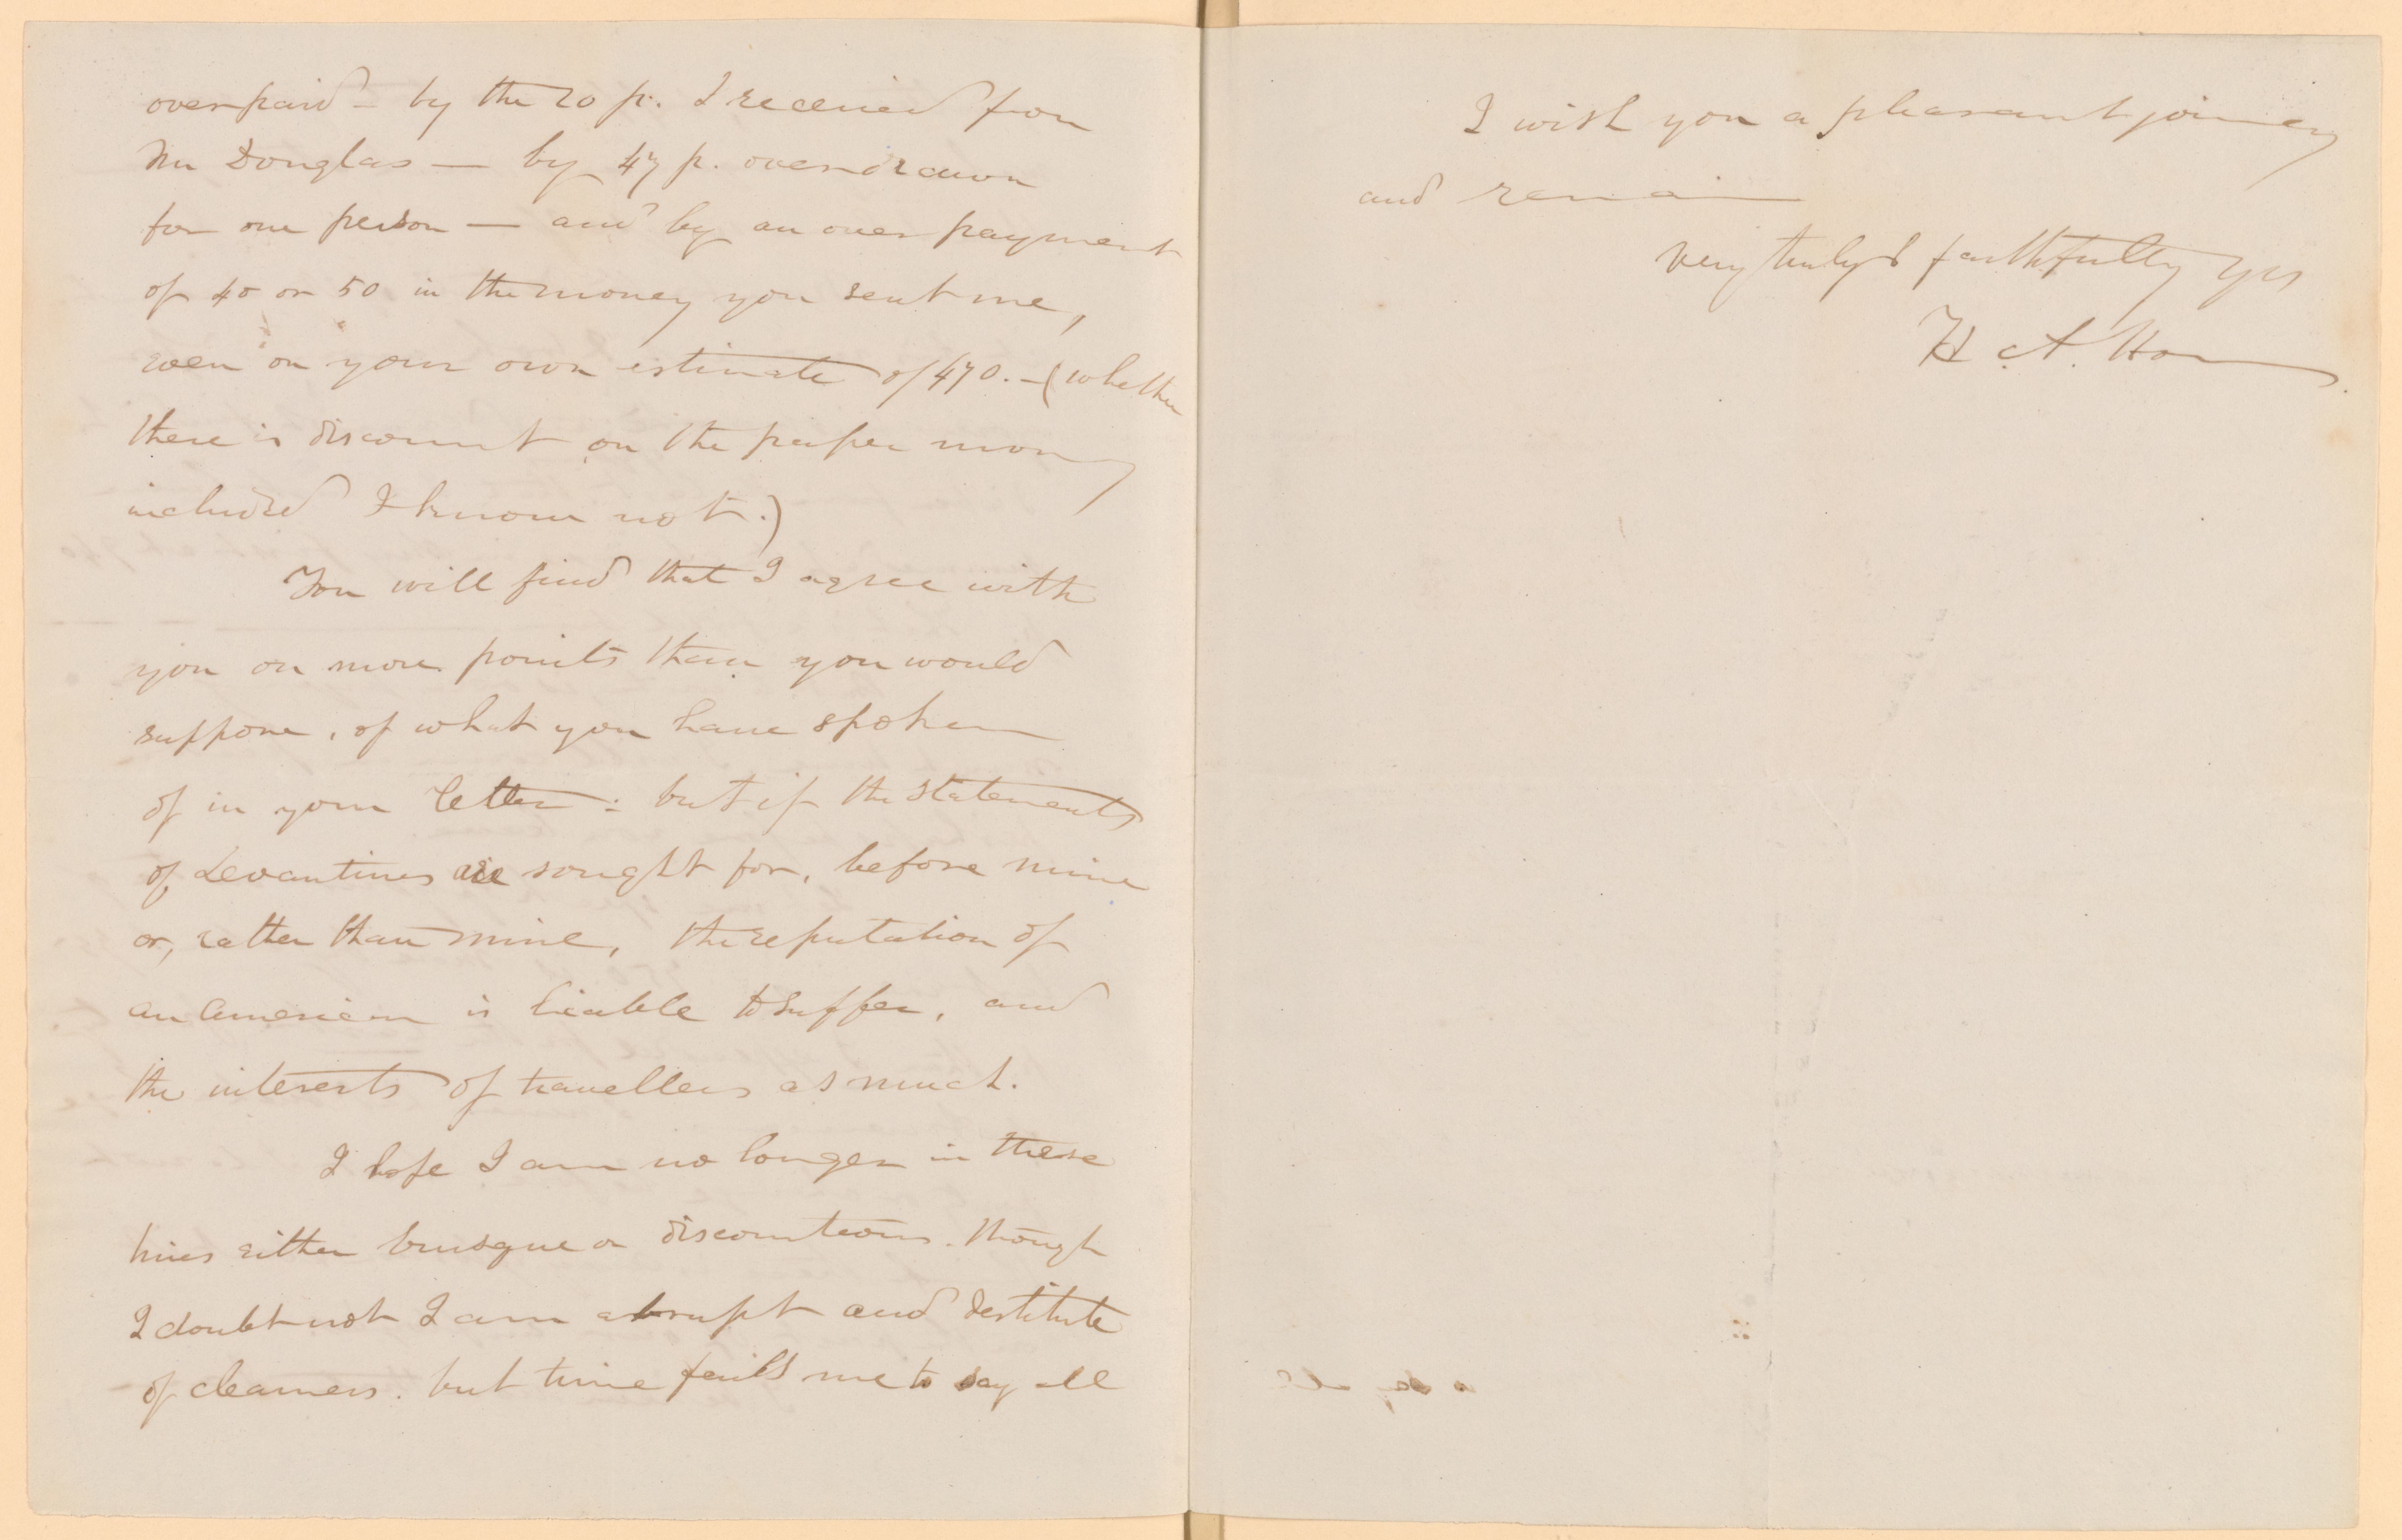 overpaid – by the 20 p. I received from
Mr Douglas — by 47 p. overdrawn
for one person — and by an over payment
of 40 or 50 in the money you sent me,
even on your own estimate of 470. – (whether
there is discount on the paper money
included I know not.)
You will find that I agree with
you on more points than you would
suppose, of what you have spoken
of in your letter: but if the statements
of Levantines are sought for, before mine
or, rather than mine, the reputation of
an American is liable to suffer, and
the interests of travellers as much.
I hope I am no longer in these
lines either brusque or discourteous. though
I doubt not I am abrupt and destitute
of clearness. but time fails me to say all
I wish you a pleasant journey
and remain
very truly & faithfully yrs
H. A. Hom